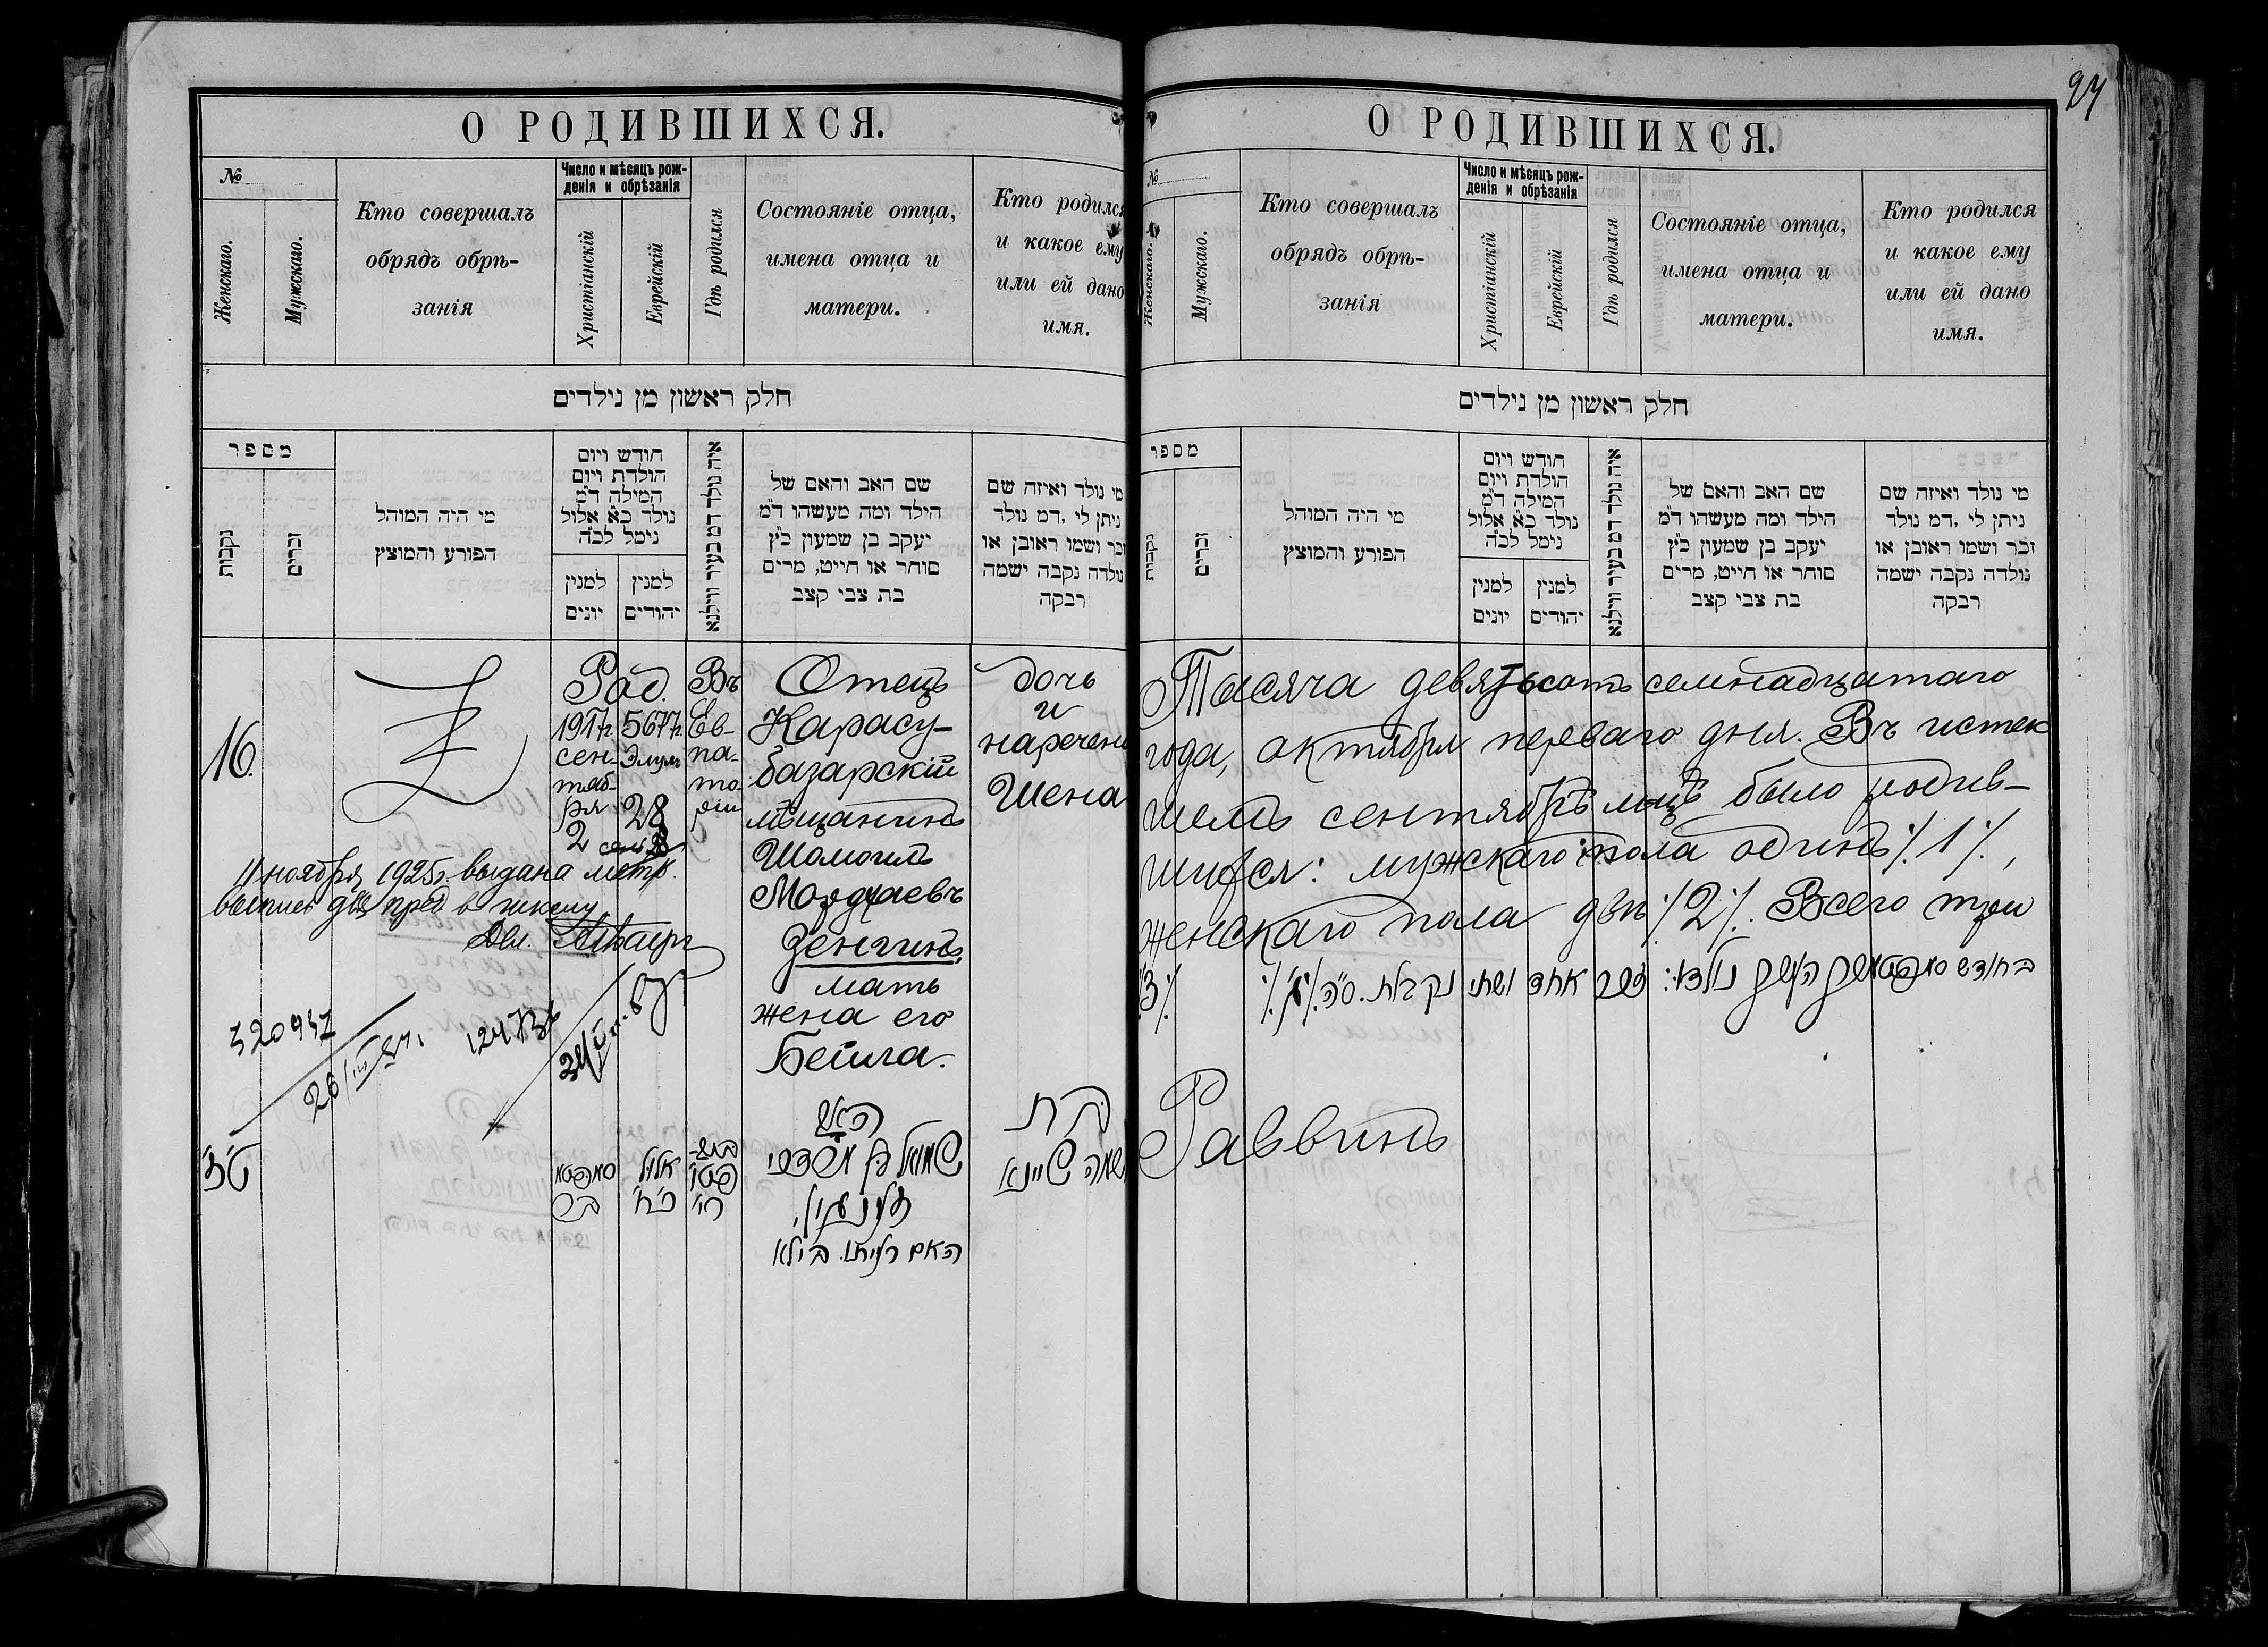 24
О РОДИВШИХСЯ.
№
Женскаго.
Мужскаго.
Кто совершалъ
обрядъ обрѣ-
занія
Число и мѣсяцъ рож-
денія и обрѣзанія
Христіанскій
Еврейскій
Гдѣ родился
Состояніе отца,
имена отца и
матери.
Кто родился
и какое ему
или ей дано
имя.
חלק ראשון מן נילדים
מספר
נקבות
זכרים
מי היה המוהל
הפורע והמוצץ
חודש ויום
הולדת ויום
המילה ד״מ
נולד כ״א אלול
נימל לכ״ה
למנין
יונים
למנין
יהודים
איה נולד דמ בעיר ווילנא
שם האב והאם של
הילד ומה מעשהו ד״מ
יעקב בן שמעון כ״ץ
סוחר או חייט, מרים
בת צבי קצב
מי נולד ואיזה שם
ניתן לי ,דמ נולד
זכר ושמו ראובן או
נולדה נקבה ישמה
רבקה
16.
Род.
1917г.
сен-
тяб-
ря
2
5677г.
Элумъ
28
Въ
Ев-
па-
то-
ріи
Отецъ
Карасу-
базарскій
мѣщанинъ
Шомоилъ
Мордхаевъ
Зенгинъ,
мать
жена его
Бейла.
дочь
и
наречена
Шена
11 ноября 1925г. выдана метр.
выпись для пред в школу
Дел.
320947
124736
ט״ז
אלול
כ״ח
האב
שמואל בן מרדכי
האם רעיתו. בילא
בת
שמה שיינא
О РОДИВШИХСЯ.
№
Женскаго.
Мужскаго.
Кто совершалъ
обрядъ обрѣ-
занія
Число и мѣсяцъ рож-
денія и обрѣзанія
Христіанскій
Еврейскій
Гдѣ родился
Состояніе отца,
имена отца и
матери.
Кто родился
и какое ему
или ей дано
имя.
חלק ראשון מן נילדים
מספר
נקבות
זכרים
מי היה המוהל
הפורע והמוצץ
חודש ויום
הולדת ויום
המילה ד״מ
נולד כ״א אלול
נימל לכ״ה
למנין
יונים
למנין
יהודים
איה נולד דמ בעיר ווילנא
שם האב והאם של
הילד ומה מעשהו ד״מ
יעקב בן שמעון כ״ץ
סוחר או חייט, מרים
בת צבי קצב
מי נולד ואיזה שם
ניתן לי ,דמ נולד
זכר ושמו ראובן או
נולדה נקבה ישמה
רבקה
Тысяча девятьсотъ семнадцатаго
года, октября перваго дня. Въ истек
шемъ сентябрѣ мцѣ было родив-
шихся: мужскаго пола одинъ ⁒ 1 ⁒,
женскаго пола двѣ ⁒ 2 ⁒. Всего три
⁒ 3 ⁒
נולדו: זכר אחד ושתי נקבות. ס״ה
Раввинъ